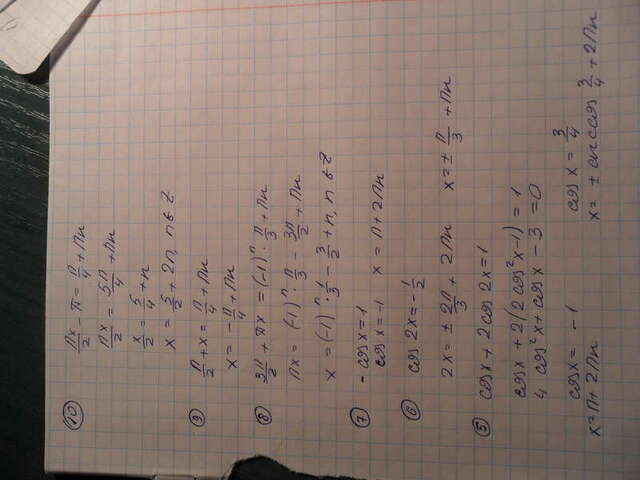 ⑩ πx/2 - π = π/4 + πn
πx/2 = 5π/4 + πn
x/2 = 5/4 + n
x = 5/2 + 2n, n ∈ Z
⑨ π/2 + x = π/4 + πn
x = -π/4 + πn
⑧ 3π/2 + πx = (-1)ⁿ · π/3 + πn
πx = (-1)ⁿ · π/3 - 3π/2 + πn
x = (-1)ⁿ · 1/3 - 3/2 + n, n ∈ Z
⑦ - cos x = 1
cos x = -1 x = π + 2πn
⑥ cos 2x = -1/2
2x = ± 2π/3 + 2πn x = ± π/3 + πn
⑤ cos x + 2 cos 2x = 1
cos x + 2(2cos²x - 1) = 1
4 cos²x + cos x - 3 = 0
cos x = -1 cos x = 3/4
x = π + 2πn x = ± arccos 3/4 + 2πn